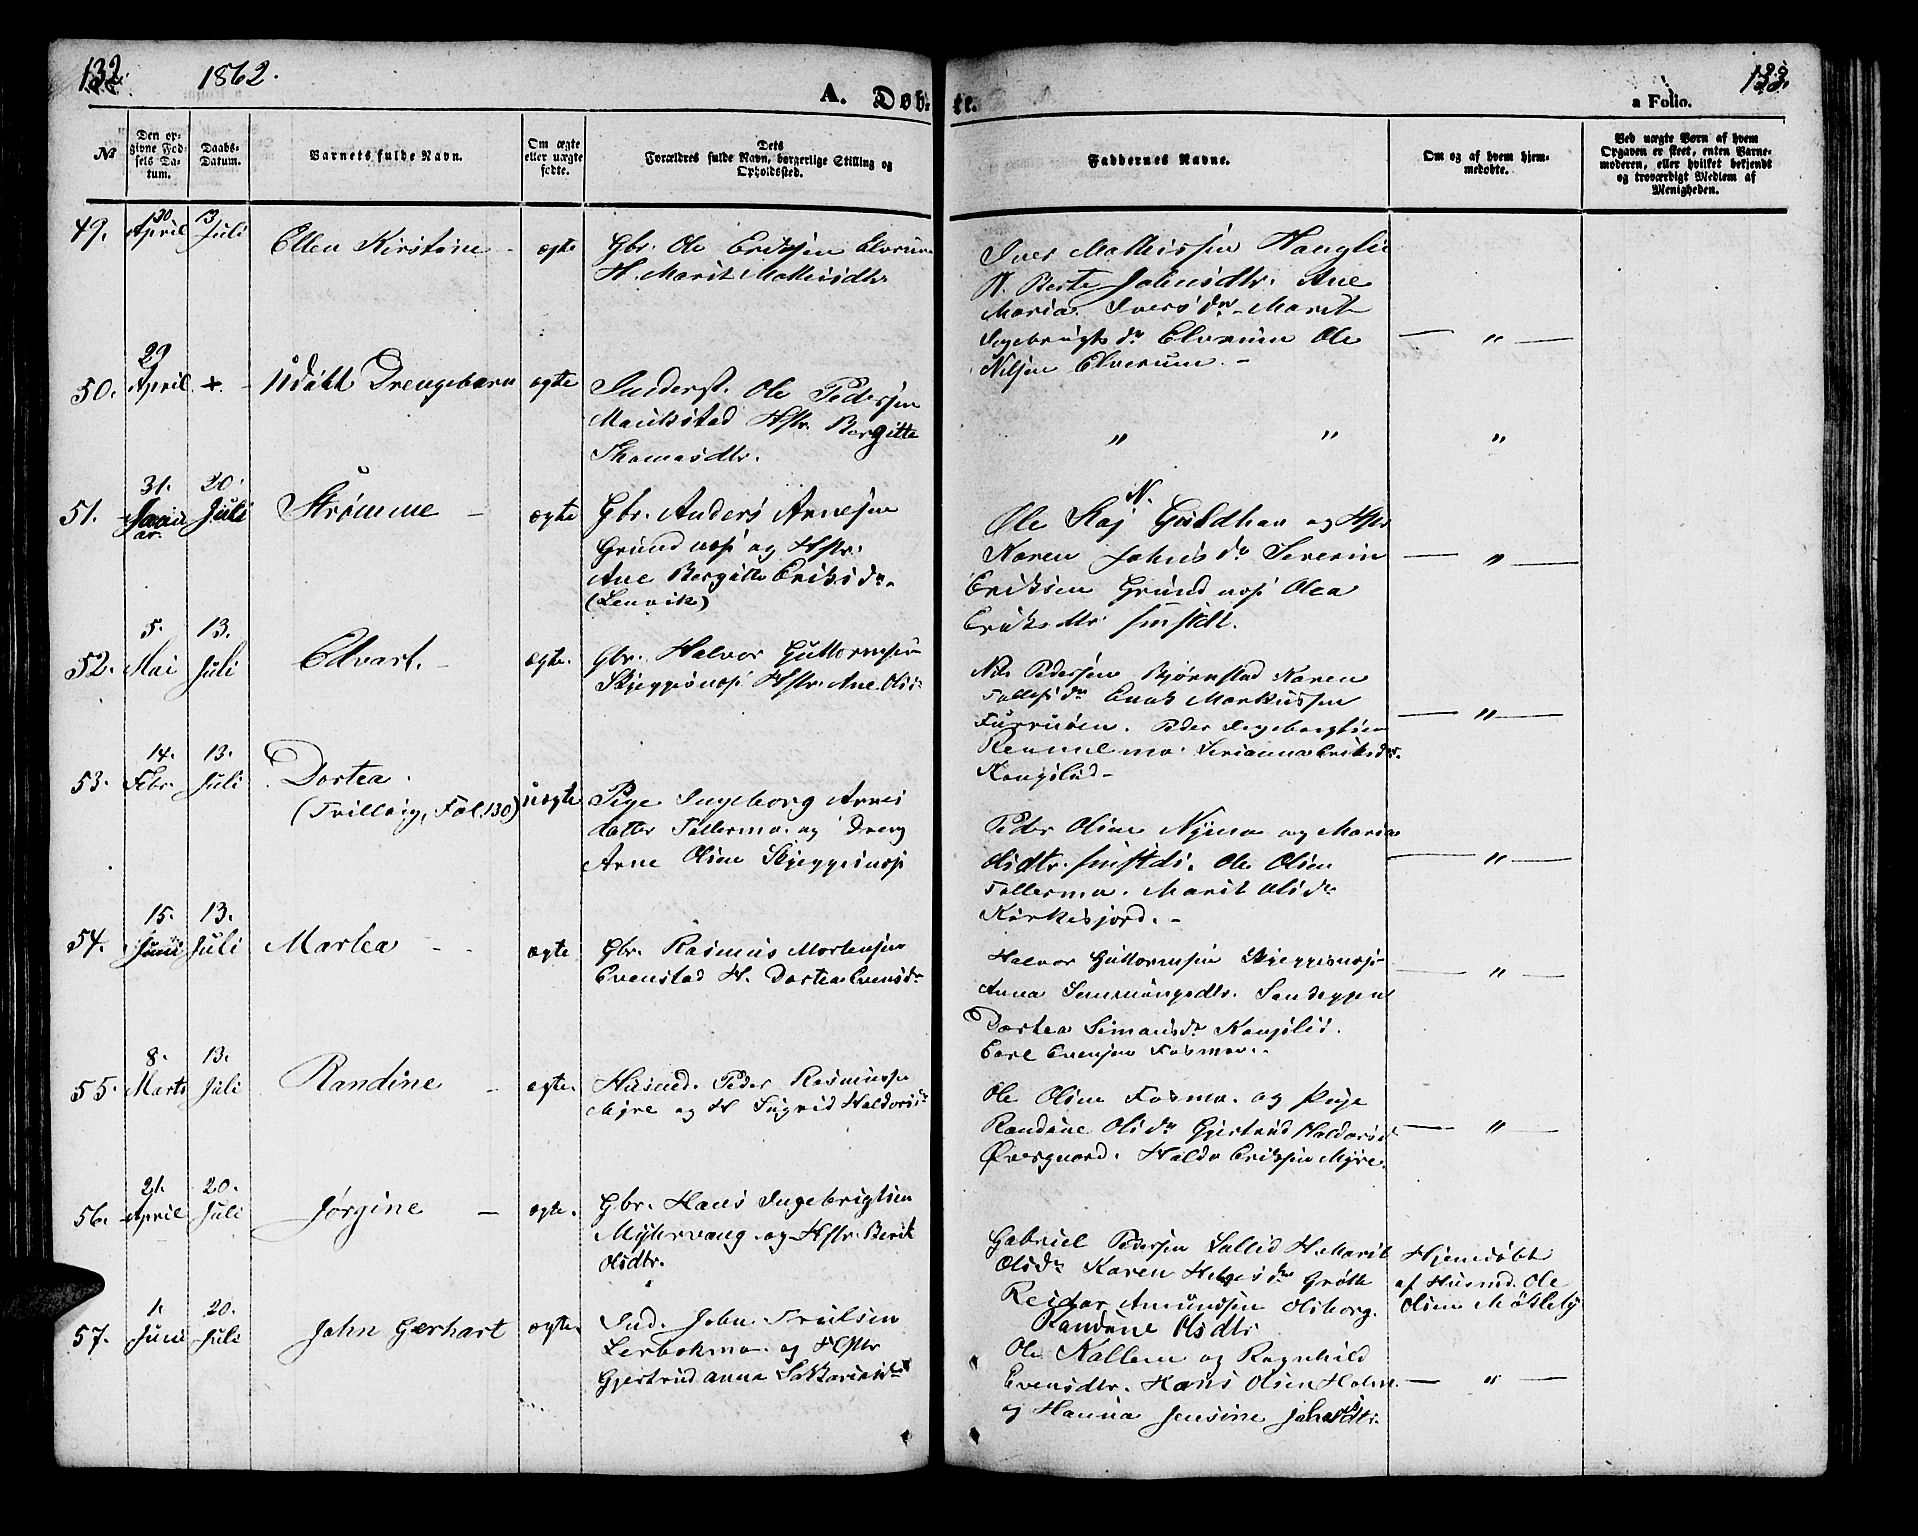 132.
1862.
A. Døb-
te.
a Folio.
133.
№
Den op-
givne Fød-
sels Da-
tum.
Daabs-
Datum.
Barnets fulde Navn.
Om ægte
eller uægte
fødte.
Dets
Forældres fulde Navn, borgerlige Stilling og
Opholdssted.
Faddernes Navne.
Om og af hvem hjem-
medøbte.
Ved uægte Børn af hvem
Opgaven er skeet, enten Barne-
moderen, eller hvilket bekjendt
og troværdigt Medlem af
Menigheden.
49.
30
April
13
Juli
Ellen Kirstine -
ægte
Gbr. Ole Eriksen Elverum
H. Marit Mathisdtr.
Iver Mathissen Kongslie
H. Berte Johnsdtr. Ane
Maria Iversdr. Marit
Ingebrigtsdr Elverum Ole
Nilsen Elverum. -
— " —
50.
29
April
+
Udøbt Drengebarn
ægte
Inderst. Ole Pedersen
Maukstad Hstr. Bergitte
Thomasdtr.
" "
"
51.
31.
Janu
ar.
20.
Juli
Strømme -
ægte
Gbr. Anders Arnesen
Grundnæs og Hstr.
Ane Bergitte Eriksdr.
(Lenvik)
Ole N. Guldhav og Hstr
Karen Johnsdr Severin
Eriksen Grundnæs Olea
Eriksdtr.
— " —
52.
5.
Mai
13.
Juli
Edvart. -
ægte.
Gbr. Halvor Guttormsen
Skjeggesnæs Hstr. Ane Olsd.
Nils Pedersen Bjørnstad Karen
Tollefsdr Enok Markussen
Furumoen. Peder Ingebrigtsen
Rennelmo. Serianna Eriksdr.
Kongslid -
— " —
53.
14.
Febr.
13.
Juli
Dortea.
(Tvilling, Fol. 130)
uægte
Pige Ingeborg Arnes
datter Tollermo. og Dreng
Arne Olsen Skjeggesnæs
Peder Olsen Nymo og Maria
Olsdtr. Ole Olsen
Tollermo. Marit Olsdr
Kirkesjord. -
— " —
54.
15.
Juni
13.
Juli
Martea - -
ægte
Gbr. Rasmus Mortensen
Evenstad H. Dortea Evensdr
Halvor Guttormsen Skjeggesnæs
Anna Sandeggen
Dortea Simonsdr Kongslid.
Carl Evensen Fosmo..
— " —
55.
8.
Marts
13.
Juli
Randine -
ægte.
Husmd. Peder Rasmussen
Myre og H Ingrid Haldorsdr
Ole Olsen Fosmo. og Pige
Randine Olsdr Gjertrud Haldorsdr
Øvergaard. Haldo Eriksen Myre.
— " —
56.
21.
April
20.
Juli
Jørgine -
ægte.
Gbr. Hans Ingebrigtsen
Myhrvang og Hstr. Berit
Olsdtr.
Gabriel Pedersen Sollid H. Marit
Olsdr Karen Helgesdr Grøtte
Reidar Amundsen Olsborg.
Randine Olsdtr
Hjemdøbt
af Husmd. Ole
Olsen Møkleby
57.
1.
Juni
20.
Juli
John Gerhart
ægte.
Ind. John Troilsen
Lerbakmo og Hstr
Gjertrud Anna Sakkariasdr
Ole Kollem og Ragnhild
Evensdtr. Hans Olsen Holm.
og Hanna Jensine Johansdtr.
— " —